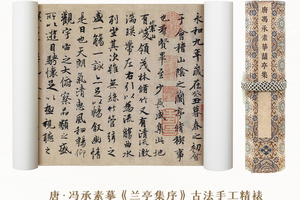 永和九年歲在癸丑暮春之初會
于會稽山陰之蘭亭脩稧事
也群賢畢至少長咸集此地
有崇山峻領茂林脩竹又有清流激
湍映帶左右引以為流觴曲水
列坐其次雖無絲竹管弦之
盛一觴一詠亦足以暢敘幽情
是日也天朗氣清惠風和暢仰
觀宇宙之大俯察品類之盛
所以遊目騁懷足以極視聽之
唐馮承素摹蘭亭集
唐·冯承素摹《兰亭集序》古法手工精裱